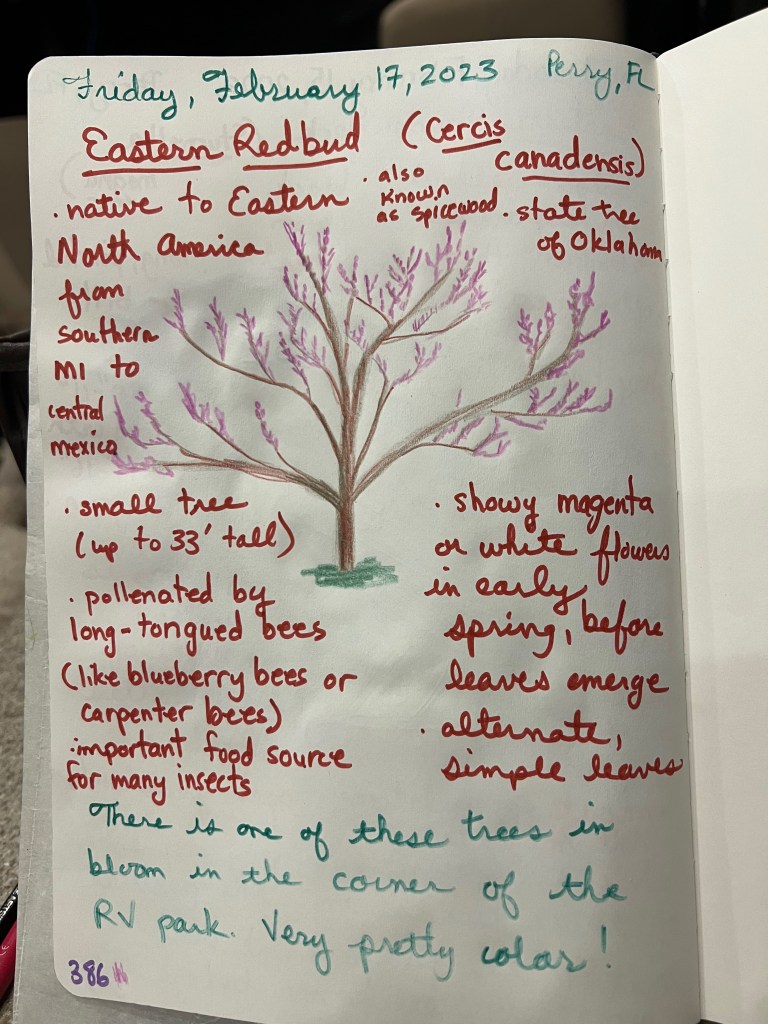 Friday, February 17, 2023 Perry, FL
Eastern Redbud (Cercis
canadensis)
· also
known
as Spicewood
· state tree
of Oklahoma
· native to Eastern
North America
from
southern
MI to
central
mexico
· small tree
(up to 33' tall)
· pollenated by
long-tongued bees
(like blueberry bees or
carpenter bees)
· important food source
for many insects
· showy magenta
or white flowers
in early
spring, before
leaves emerge
· alternate,
simple leaves
There is one of these trees in
bloom in the corner of the
RV park. Very pretty color!
386